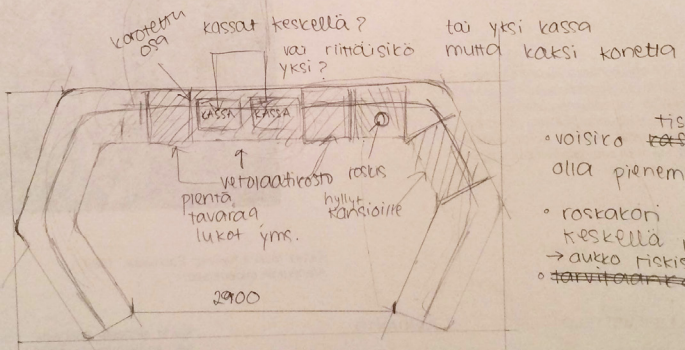 korotettu
osa
kassat keskellä?
vai riittäisikö
yksi?
tai yksi kassa
mutta kaksi konetta
KASSA
KASSA
vetolaatikosto
roskis
pientä
tavaraa
lukot yms.
hyllyt
kansioille
2900
tis
• voisiko
olla pienem
• roskakori
keskellä
→ aukko tiskis
• tarvitaank